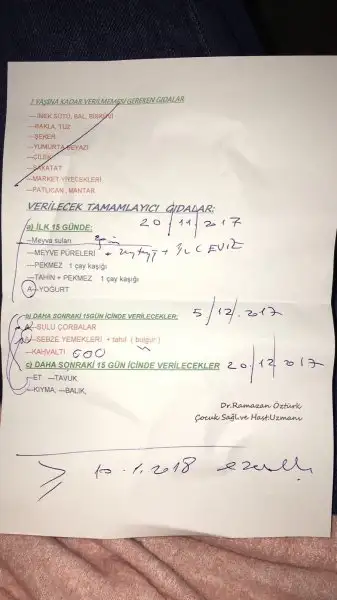 2 YAŞINA KADAR VERİLMEMESİ GEREKEN GIDALAR
—İNEK SÜTÜ, BAL, BİSKÜVİ
—BAKLA, TUZ
—ŞEKER
—YUMURTA BEYAZI
—ÇİLEK
—SAKATAT
—MARKET YİYECEKLERİ
—PATLICAN, MANTAR
VERİLECEK TAMAMLAYICI GIDALAR:
a) İLK 15 GÜNDE: 20/11/2017
—Meyva suları
—MEYVE PÜRELERİ + 1/2 CEVİZ
—PEKMEZ 1 çay kaşığı
—TAHİN + PEKMEZ 1 çay kaşığı
—YOĞURT
b) DAHA SONRAKİ 15GÜN İCİNDE VERİLECEKLER: 5/12/2017
—SULU ÇORBALAR
—SEBZE YEMEKLERİ + tahıl ( bulgur )
—KAHVALTI
c) DAHA SONRAKİ 15 GÜN İCİNDE VERİLECEKLER 20/12/2017
—ET —TAVUK,
—KIYMA, —BALIK,
Dr.Ramazan Öztürk
Çocuk Sağl.ve Hast.Uzmanı
10.1.2018